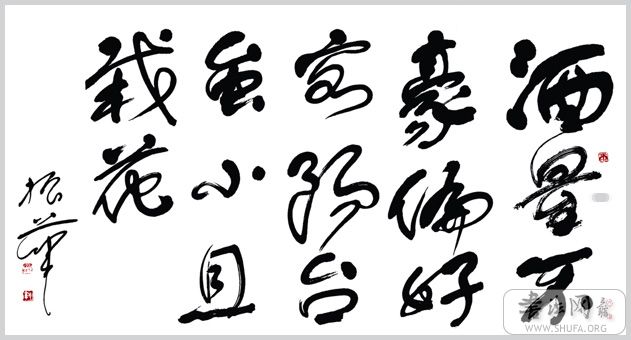 酒量不
豪偏好
客阳台
虽小且
栽花
振華
WWW.SHUFA.ORG